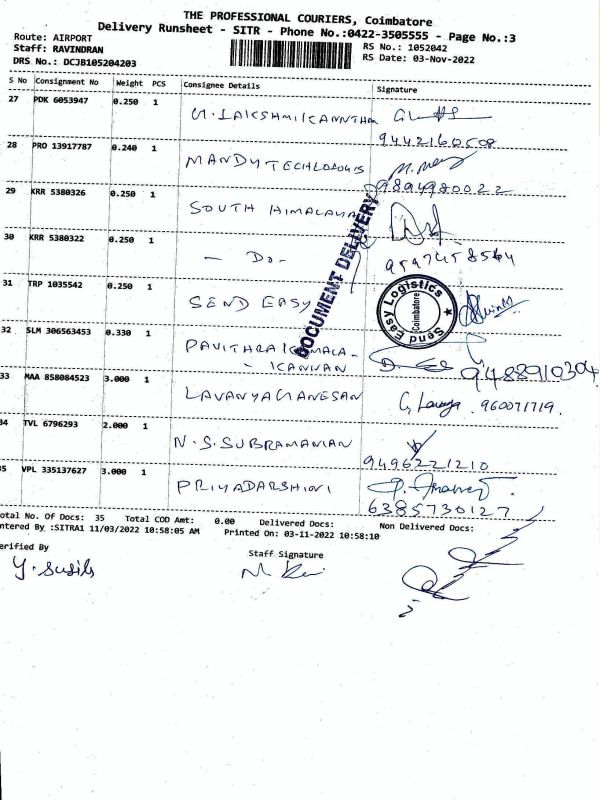 THE PROFESSIONAL COURIERS, Coimbatore
Delivery Runsheet - SITR - Phone No.:0422-3505555 - Page No.:3
Route: AIRPORT
RS No.: 1052042
Staff: RAVINDRAN
RS Date: 03-Nov-2022
DRS No.: DCJB105204203
S No Consignment No Weight PCS Consignee Details Signature
27 PDK 6053947 0.250 1 G. LAKSHMIKANNTHAN
9442160508
28 PRO 13917787 0.240 1 MANDY
9894980022
29 KRR 5380326 0.250 1 SOUTH HIMALAYA
30 KRR 5380322 0.250 1 - Do - 9597458564
31 TRP 1035542 0.250 1 SEND EASY
DOCUMENT DELIVERY
Send Easy Logistics
Coimbatore
32 SLM 306563453 0.330 1 PAVITHRA KAMALA-
- KANNAN 9488910304
33 MAA 858084523 3.000 1 LAVANYA GANESAN G. Lavanya 960071719.
34 TVL 6796293 2.000 1 N.S.SUBRAMANIAN
9496221210
35 VPL 335137627 3.000 1 PRIYADARSHINI
6385730127
Total No. Of Docs: 35 Total COD Amt: 0.00 Delivered Docs: Non Delivered Docs:
Entered By :SITRA1 11/03/2022 10:58:05 AM Printed On: 03-11-2022 10:58:10
Verified By
Staff Signature
Y. Susila